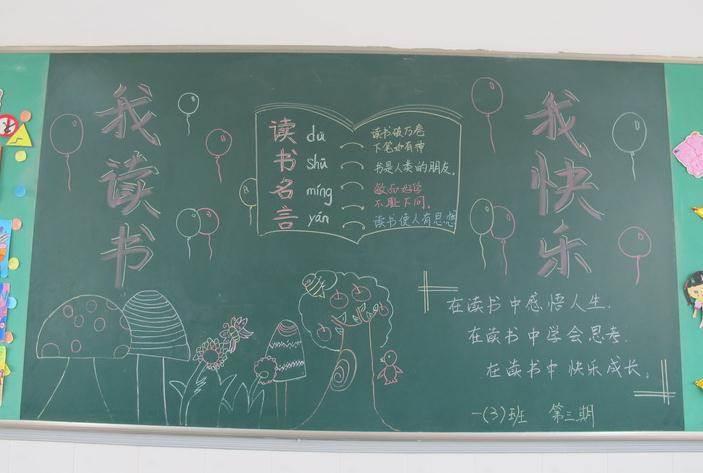 我读书
读 dú
书 shū
名 míng
言 yán
读书破万卷
下笔如有神
书是人类的朋友。
敏而好学
不耻下问。
读书使人有思想
我快乐
在读书中感悟人生.
在读书中学会思考.
在读书中快乐成长。
一(3)班 第三期